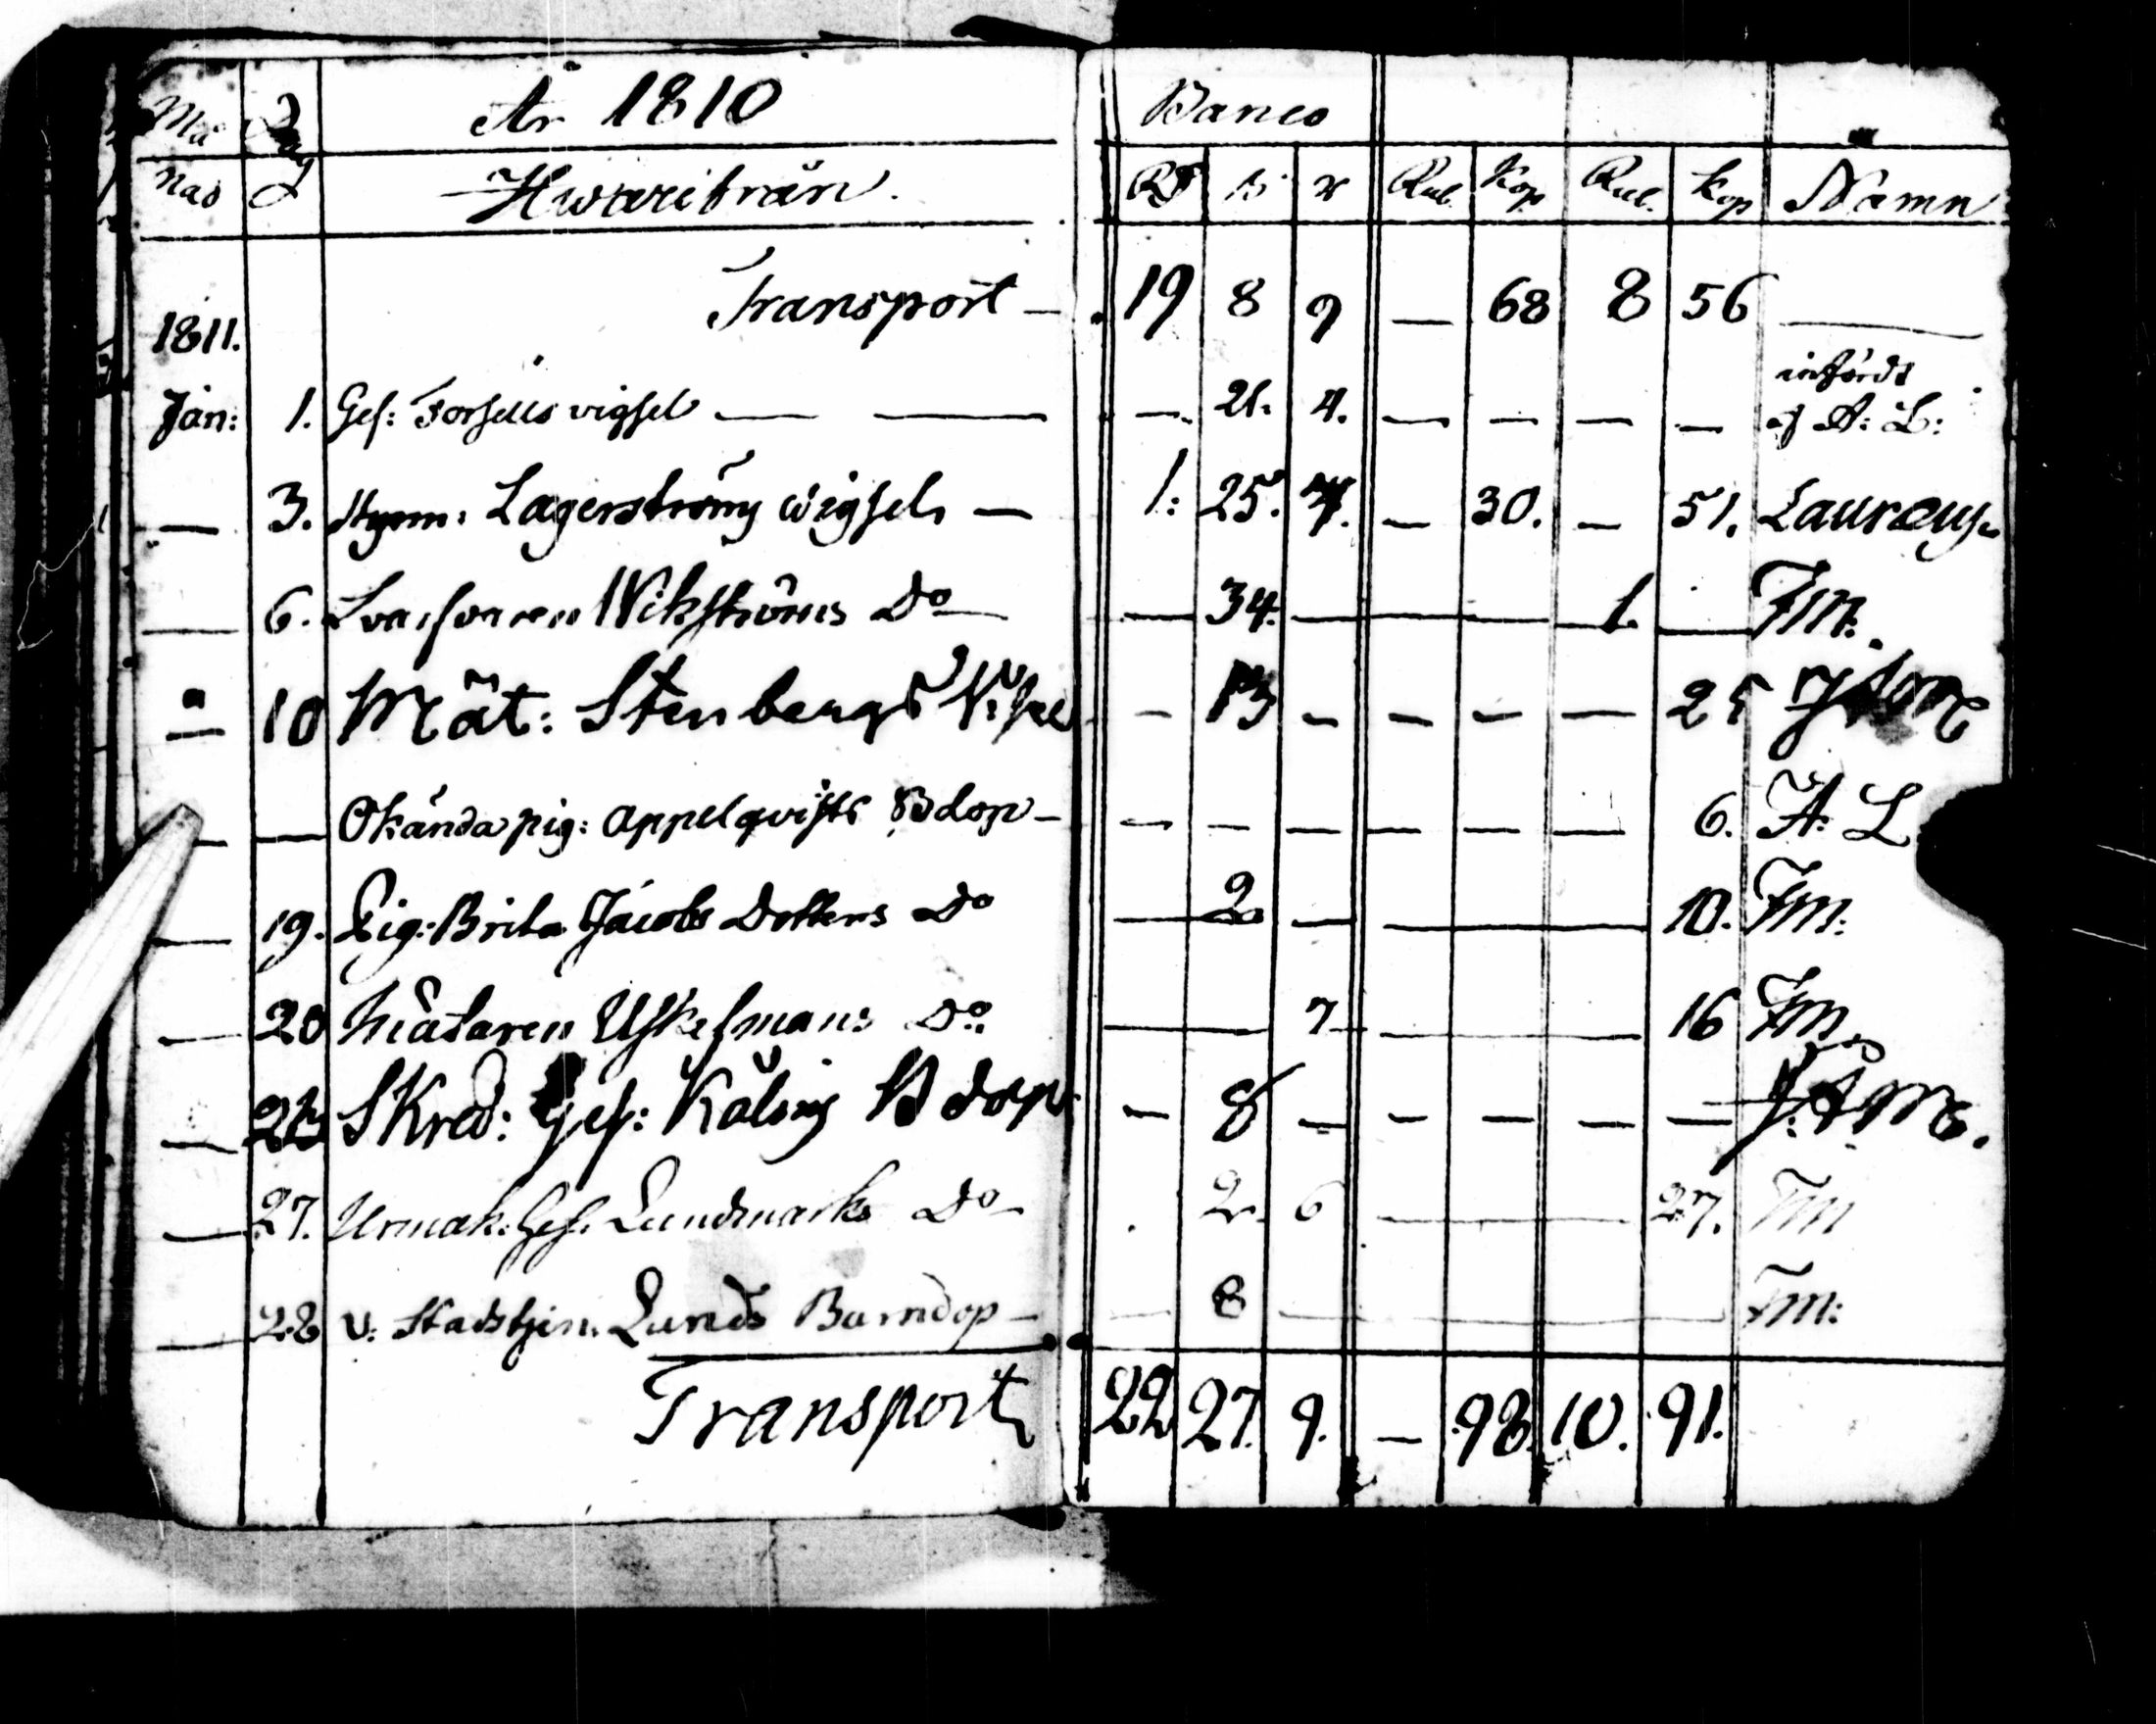 År 1810 Banco
Månad Dag Hwarifrån. Rd ß r Rub. Kop Rub. Kop Namn
Transport — 19 8 9 — 68 8 56 —
1811.
infördt
Jan: 1. Ges: Forsells vigsel — — — 21. 4. — — — — af A: L:
— 3. Lagerströms wigsel — 1: 25. 7. — 30. — 51.
— 6. Wikströms Do — — 34. — 1. — Fm.
— 10 Mät: Stenbergs — 13 — — — — 25
— — Okända pig: Appelqvists Bdop — — — — — — — 6. A: L
— 19. Pig: Brita Jacobs Dotters Do — 2 — — 10. Fm:
— 20 Mätaren Do — 7 — 16 Fm
— Skred: Ges: Bdop — 8 — — — — —
— 27. Urmak: Ges. Lundmarks Do — 2. 6 — 27. Fm
— 28 v. Stadstjen. Lunds Barndop — — 8 — Fm:
Transport 22 27. 9. — 98. 10. 91.